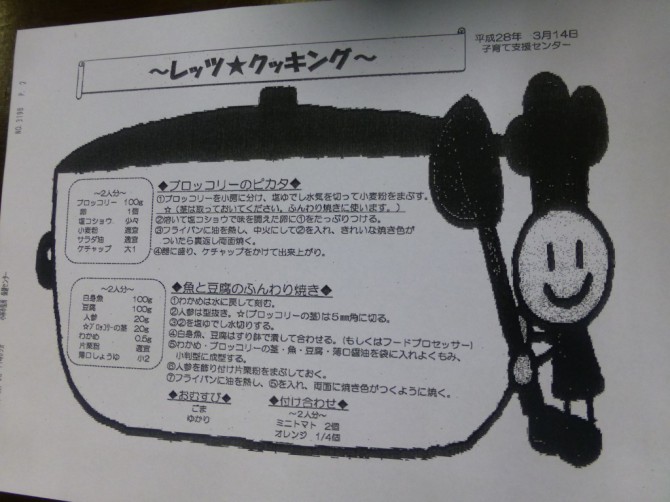 平成28年　3月14日
子育て支援センター
～レッツ★クッキング～
NO. 3198 P. 3
◆ブロッコリーのピカタ◆
～2人分～
ブロッコリー 100g
卵 1個
塩コショウ 少々
小麦粉 適宜
サラダ油 適宜
ケチャップ 大1
①ブロッコリーを小房に分け、塩ゆでし水気を切って小麦粉をまぶす。
☆（茎は取っておいてください。ふんわり焼きに使います。）
②溶いて塩コショウで味を整えた卵に①をたっぷりつける。
③フライパンに油を熱し、中火にして②を入れ、きれいな焼き色が
ついたら裏返し両面焼く。
④器に盛り、ケチャップをかけて出来上がり。
◆魚と豆腐のふんわり焼き◆
～2人分～
白身魚 100g
豆腐 100g
人参 20g
☆ブロッコリーの茎 20g
わかめ 0.5g
片栗粉 適宜
薄口しょうゆ 小2
①わかめは水に戻して刻む。
②人参は型抜き、☆(ブロッコリーの茎)は5㎜角に切る。
③②を塩ゆでし水切りする。
④白身魚、豆腐はすり鉢で潰して合わせる。(もしくはフードプロセッサー)
⑤わかめ・ブロッコリーの茎・魚・豆腐・薄口醤油を袋に入れよくもみ、
小判型に成型する。
⑥人参を飾り付け片栗粉をまぶしておく。
⑦フライパンに油を熱し、⑤を入れ、両面に焼き色がつくように焼く。
◆おむすび◆
ごま
ゆかり
◆付け合わせ◆
～2人分～
ミニトマト 2個
オレンジ 1/4個